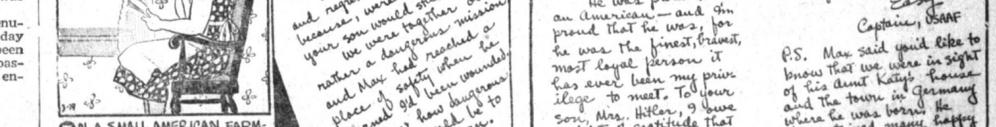 nu-
day
been
pas-
en-
3-19
ON A SMALL AMERICAN FARM-
and
because, were
your son would
we were together
rather a dangerous mission
and Max had reached a
place of safety when he
I'd been wounded.
how dangerous
be to
an American — and I'm
proud that he was, for
he was the finest, bravest,
most loyal person it
has ever been my priv-
ilege to meet. To your
son, Mrs. Hitler, I owe
gratitude that
Captain, USAAF
P.S. Max said you'd like to
know that we were in sight
of his aunt Katy's house
and the town in Germany
where he was born. He
many happy